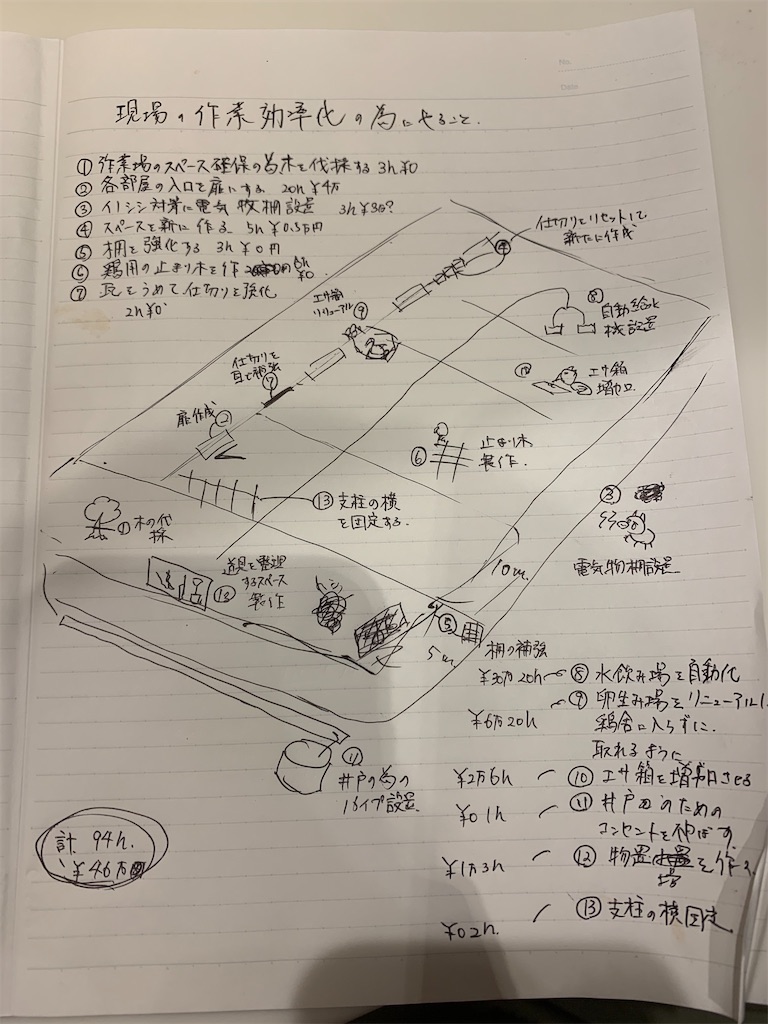 No.
Date
現場の作業効率化の為にやること.
① 作業場のスペース確保の為木を伐採する 3h ¥0
② 各部屋の入口を扉にする 20h ¥4万
③ イノシシ対策に電気牧柵設置 3h ¥3万?
④ スペースを新に作る 5h ¥0.5万円
⑤ 柵を強化する 3h ¥0円
⑥ 鶏用の止まり木を作 6h ¥0
⑦ 瓦をうめて仕切りを強化
2h ¥0
仕切りをリセットして
新たに作成
④
エサ箱
リニューアル ⑨
⑧
自動給水
機設置
仕切りを
瓦で補強
⑦
⑩ エサ箱
増加
扉作成 ②
⑥ 止まり木
製作.
⑬ 支柱の横
を固定する.
① 木の伐
採
③
電気牧柵設置
道具を整理
するスペース
製作
⑫
10m
5m
⑤
柵の補強
¥30万 20h ⑧ 水飲み場を自動化
¥6万 20h ⑨ 卵生み場をリニューアルし
鶏舎に入らずに.
取れるように
⑪
井戸の為の
パイプ設置
¥2万 6h ⑩ エサ箱を増加させる
¥0 1h ⑪ 井戸のための
コンセントを伸ばす
¥1万 3h ⑫ 物置場を作る
¥0 2h. ⑬ 支柱の横固定
計 94h.
¥46万